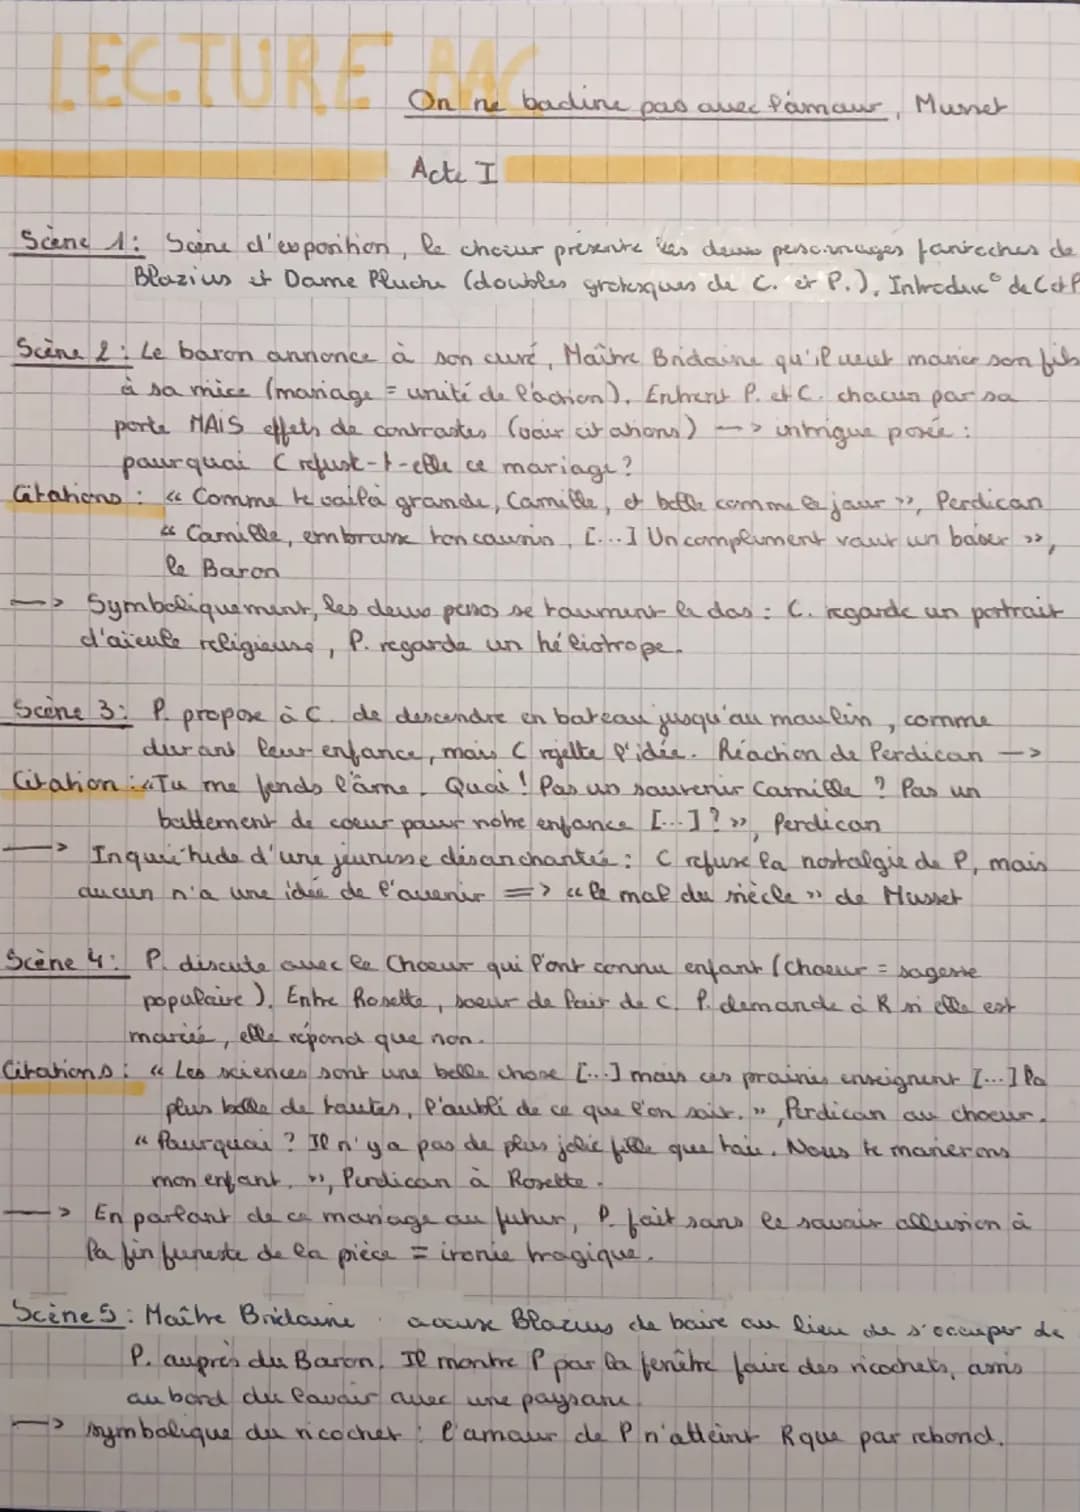 LECTURE BAC
On ne badine pas avec l'amour, Musset
Acte I
Scène 1: Scène d'exposition, le chœur présente les deux personnages fantoches de
Blazius et Dame Pluche (doubles grotesques de C. et P.), Introduc° de C et P
Scène 2: Le baron annonce à son curé, Maître Bridaine qu'il veut marier son fils
à sa nièce (mariage = unité de l'action). Entrent P. et C. chacun par sa
porte MAIS effets de contrastes (voir citations) --> intrigue posée :
pourquoi C refust-t-elle ce mariage ?
Citations : « Comme te voilà grande, Camille, et belle comme le jour », Perdican
« Camille, embrasse ton cousin, [...] Un compliment vaut un baiser »,
le Baron
--> Symboliquement, les deux persos se tournent le dos : C. regarde un portrait
d'aïeule religieuse, P. regarde un héliotrope.
Scène 3: P. propose à C. de descendre en bateau jusqu'au moulin, comme
durant leur enfance, mais C rejette l'idée. Réaction de Perdican -->
Citation : « Tu me fends l'âme. Quoi ! Pas un souvenir Camille ? Pas un
battement de coeur pour notre enfance [...] ? », Perdican
--> Inquiétude d'une jeunesse désanchantée : C refuse la nostalgie de P, mais
aucun n'a une idée de l'avenir => « le mal du siècle » de Musset
Scène 4: P. discute avec le Choeur qui l'ont connu enfant (Choeur = sagesse
populaire). Entre Rosette, soeur de lait de C. P. demande à R si elle est
mariée, elle répond que non.
Citations : « Les sciences sont une belle chose [...] mais ces prairies enseignent [...] la
plus belle de toutes, l'oubli de ce que l'on sait. », Perdican au choeur.
« Pourquoi ? Il n'y a pas de plus jolie fille que toi. Nous te marierons
mon enfant. », Perdican à Rosette.
--> En parlant de ce mariage au futur, P. fait sans le savoir allusion à
la fin funeste de la pièce = ironie tragique.
Scène 5: Maître Bridaine accuse Blazius de boire au lieu de s'occuper de
P. auprès du Baron. Il montre P par la fenêtre faire des ricochets, assis
au bord du lavoir avec une paysane.
--> symbolique du ricochet : l'amour de P n'atteint R que par rebond.